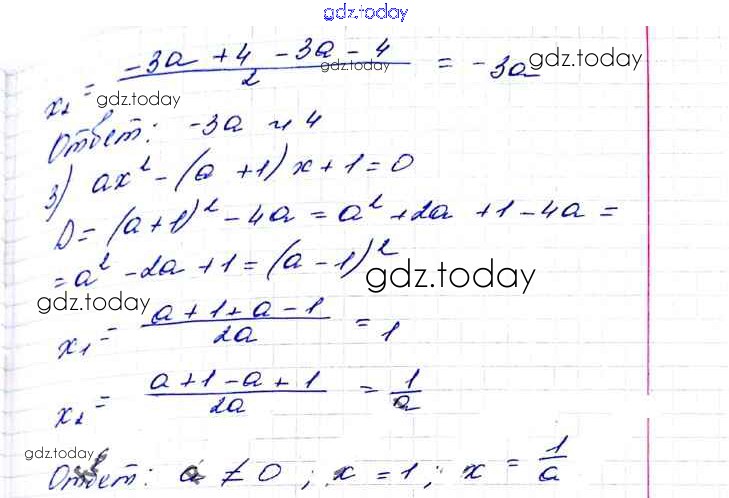 gdz.today
x₂ = (-3a + 4 - 3a - 4)/2 = -3a
gdz.today
gdz.today
gdz.today
Ответ: -3a и 4
3) ax² - (a + 1)x + 1 = 0
D = (a + 1)² - 4a = a² + 2a + 1 - 4a =
= a² - 2a + 1 = (a - 1)²
gdz.today
gdz.today
x₁ = (a + 1 + a - 1)/2a = 1
x₂ = (a + 1 - a + 1)/2a = 1/a
gdz.today
Ответ: a ≠ 0; x = 1; x = 1/a